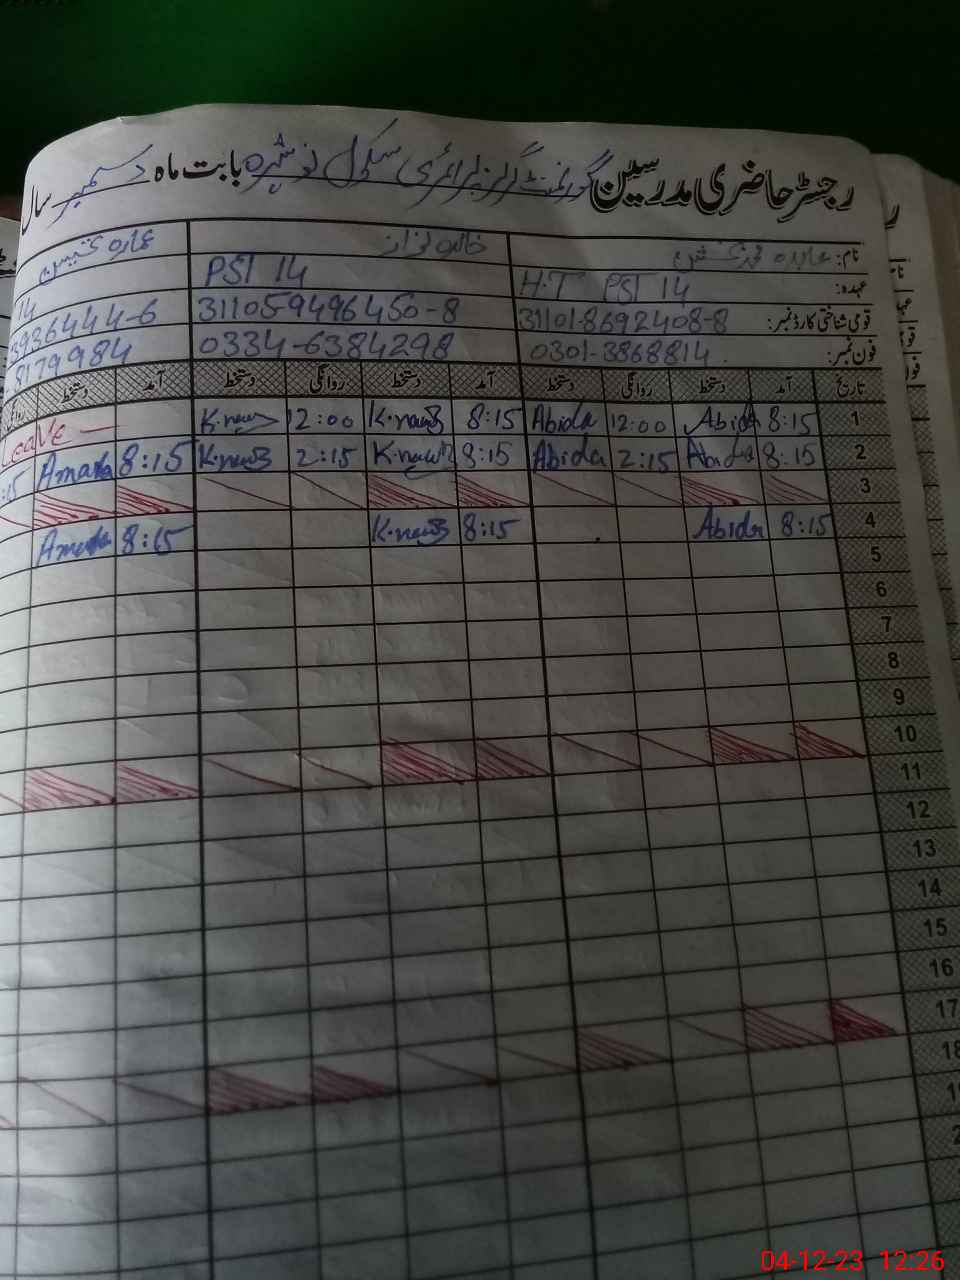 رجسٹر حاضری مدرسین گورنمنٹ گرلز پرائمری سکول نوشہرہ بابت ماہ دسمبر سال
نام: عابدہ نواز عمارہ
عہدہ: H.T PST 14 PST 14 14
قومی شناختی کارڈ نمبر: 31101-8692408-8 311059496450-8 3936444-6
فون نمبر: 0301-3868814 0334-6384298 8179984
تاریخ آمد دستخط روانگی دستخط آمد دستخط روانگی دستخط آمد دستخط روانگی
1 8:15 Abida 12:00 Abida 8:15 K.nawaz 12:00 K.nawaz Leave
2 8:15 Abida 2:15 Abida 8:15 K.nawaz 2:15 K.nawaz 8:15 Amara :15
3
4 8:15 Abida 8:15 K.nawaz 8:15 Amara
5
6
7
8
9
10
11
12
13
14
15
16
17
18
04-12-23 12:26